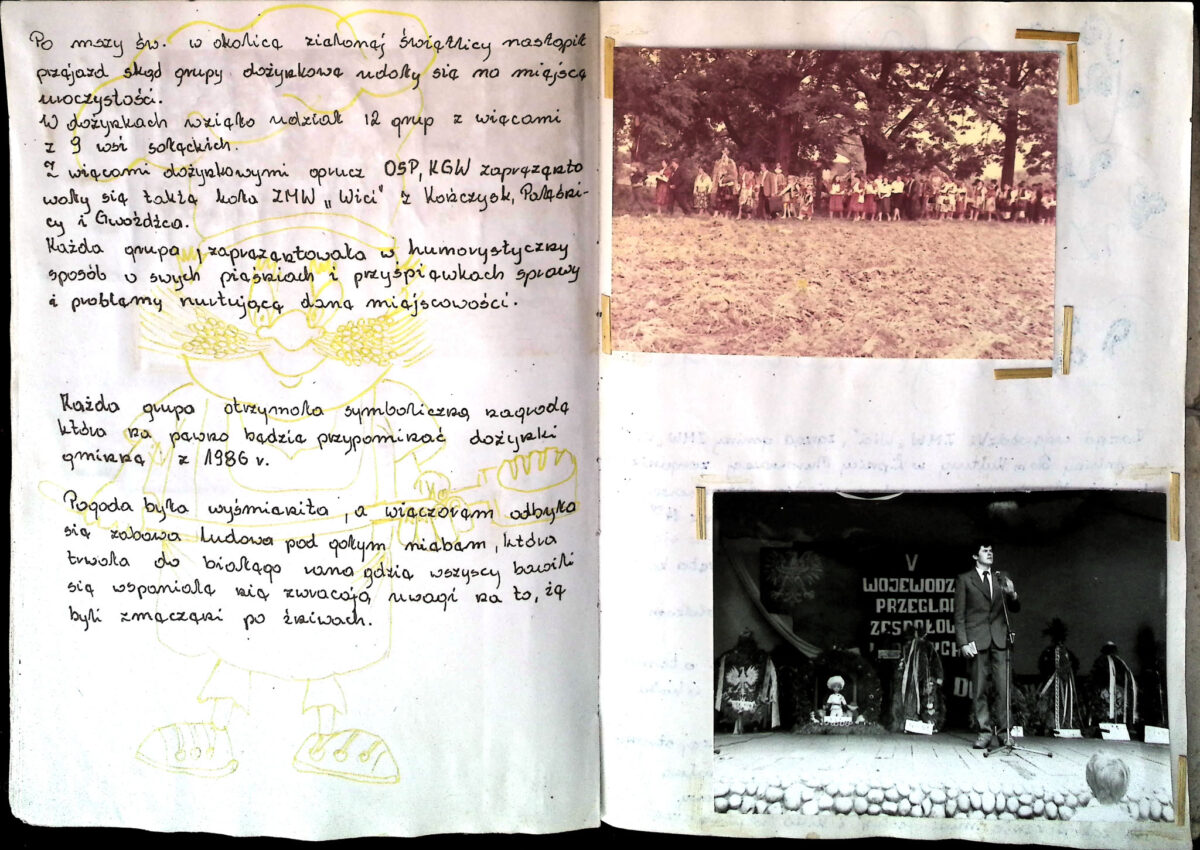 Po mszy św. w okolicą zialonaj świątlicy nastąpił
przajazd skąd grupy dożynkowa udały się na miajsca
uroczystości.
W dożynkach wzięło udział 12 grup z wiańcami
z 9 wsi sołackich.
Z wiańcami dożynkowymi oprucz OSP, KGW zaprazanto
wały się takża koła ZMW „Wici" z
cy i Gwoźdźca.
Każda grupa zaprazantowała w humorystyczny
sposób o swych piaśniach i przyśpiawkach sprawy
i problamy nurtującą daną miajscowości.
Każda grupa otrzymała symboliczną nagrodą
która na pawno bądzia przypominać dożynki
gminna z 1986 r.
Pogoda była wyśmianita, a wiaczoram odbyła
się zabawa ludowa pod gołym niabam, która
trwała do białago rana gdzia wszyscy bawili
się wspaniala nia zwracają uwagi na to, ża
byli zmączani po żniwach.
V
WOJEWODZ
PRZEGLĄD
ZESPOŁÓW